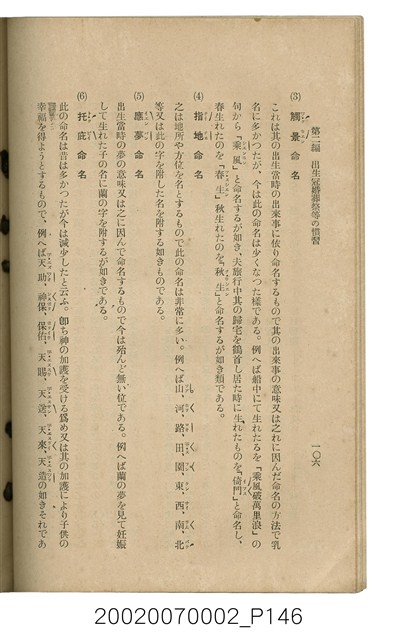 第二編 出生冠婚葬祭等の慣習
一〇六
(3) 觸景命名
これは其の出生當時の出來事に依り命名するもので其の出來事の意味又は之れに因んだ命名の方法で乳
名に多かつたが、今は此の命名は少くなつた樣である。例へば船中にて生れたるを「乘風破萬里浪」の
句から「乘風」と命名するが如き、夫旅行中其の歸宅を鶴首し居た時に生れたものを「倚門」と命名し、
春生れたのを「春生」秋生れたのを「秋生」と命名するが如き類である。
(4) 指地命名
之は地所や方位を名とするもので此の命名は非常に多い。例へば山、河、路、田、園、東、西、南、北
等又は此の字を附した名を附する如きものである。
(5) 應夢命名
出生當時の夢の意味又は之に因んで命名するもので今は殆んど無い位である。例へば蘭の夢を見て妊娠
して生れた子の名に蘭の字を附するが如きである。
(6) 托庇命名
此の命名は昔は多かつたが今は減少したと云ふ。卽ち神の加護を受ける爲め又は其の加護により子供の
幸福を得ようとするもので、例へば天助、神保、保佑、天賜、天送、天來、天造の如きそれであ
20020070002_P146